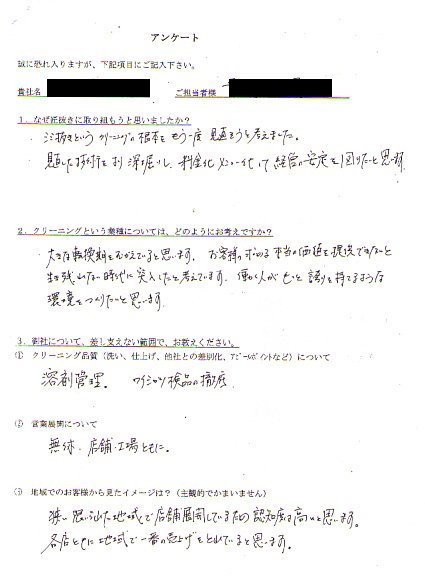 アンケート
誠に恐れ入りますが、下記項目にご記入下さい。
貴社名 ご担当者様
1．なぜ汚抜きに取り組もうと思いましたか？
・シミ抜きというクリーニングの根本をもう一度見直そうと考えました。
・見直した技術をより深く掘り、料金化、メニュー化して経営の安定を図りたいと思います。
2．クリーニングという業種については、どのようにお考えですか？
大きな転換期をむかえていると思います。お客様の求める本当の価値を提供できないと
生き残れない時代に突入したと考えています。働く人がもっと誇りを持てるような
環境をつくりたいと思います。
3．御社について、差し支えない範囲で、お教えください。
① クリーニング品質（洗い、仕上げ、他社との差別化、ｱﾋﾟｰﾙﾎﾟｲﾝﾄなど）について
溶剤管理。 ワイシャツ検品の徹底
② 営業展開について
無休、店舗・工場ともに。
③ 地域でのお客様から見たイメージは？（主観的でかまいません）
狭い限られた地域で店舗展開しているための認知度は高いと思います。
各店ともに地域で一番の売上げをとれていると思います。